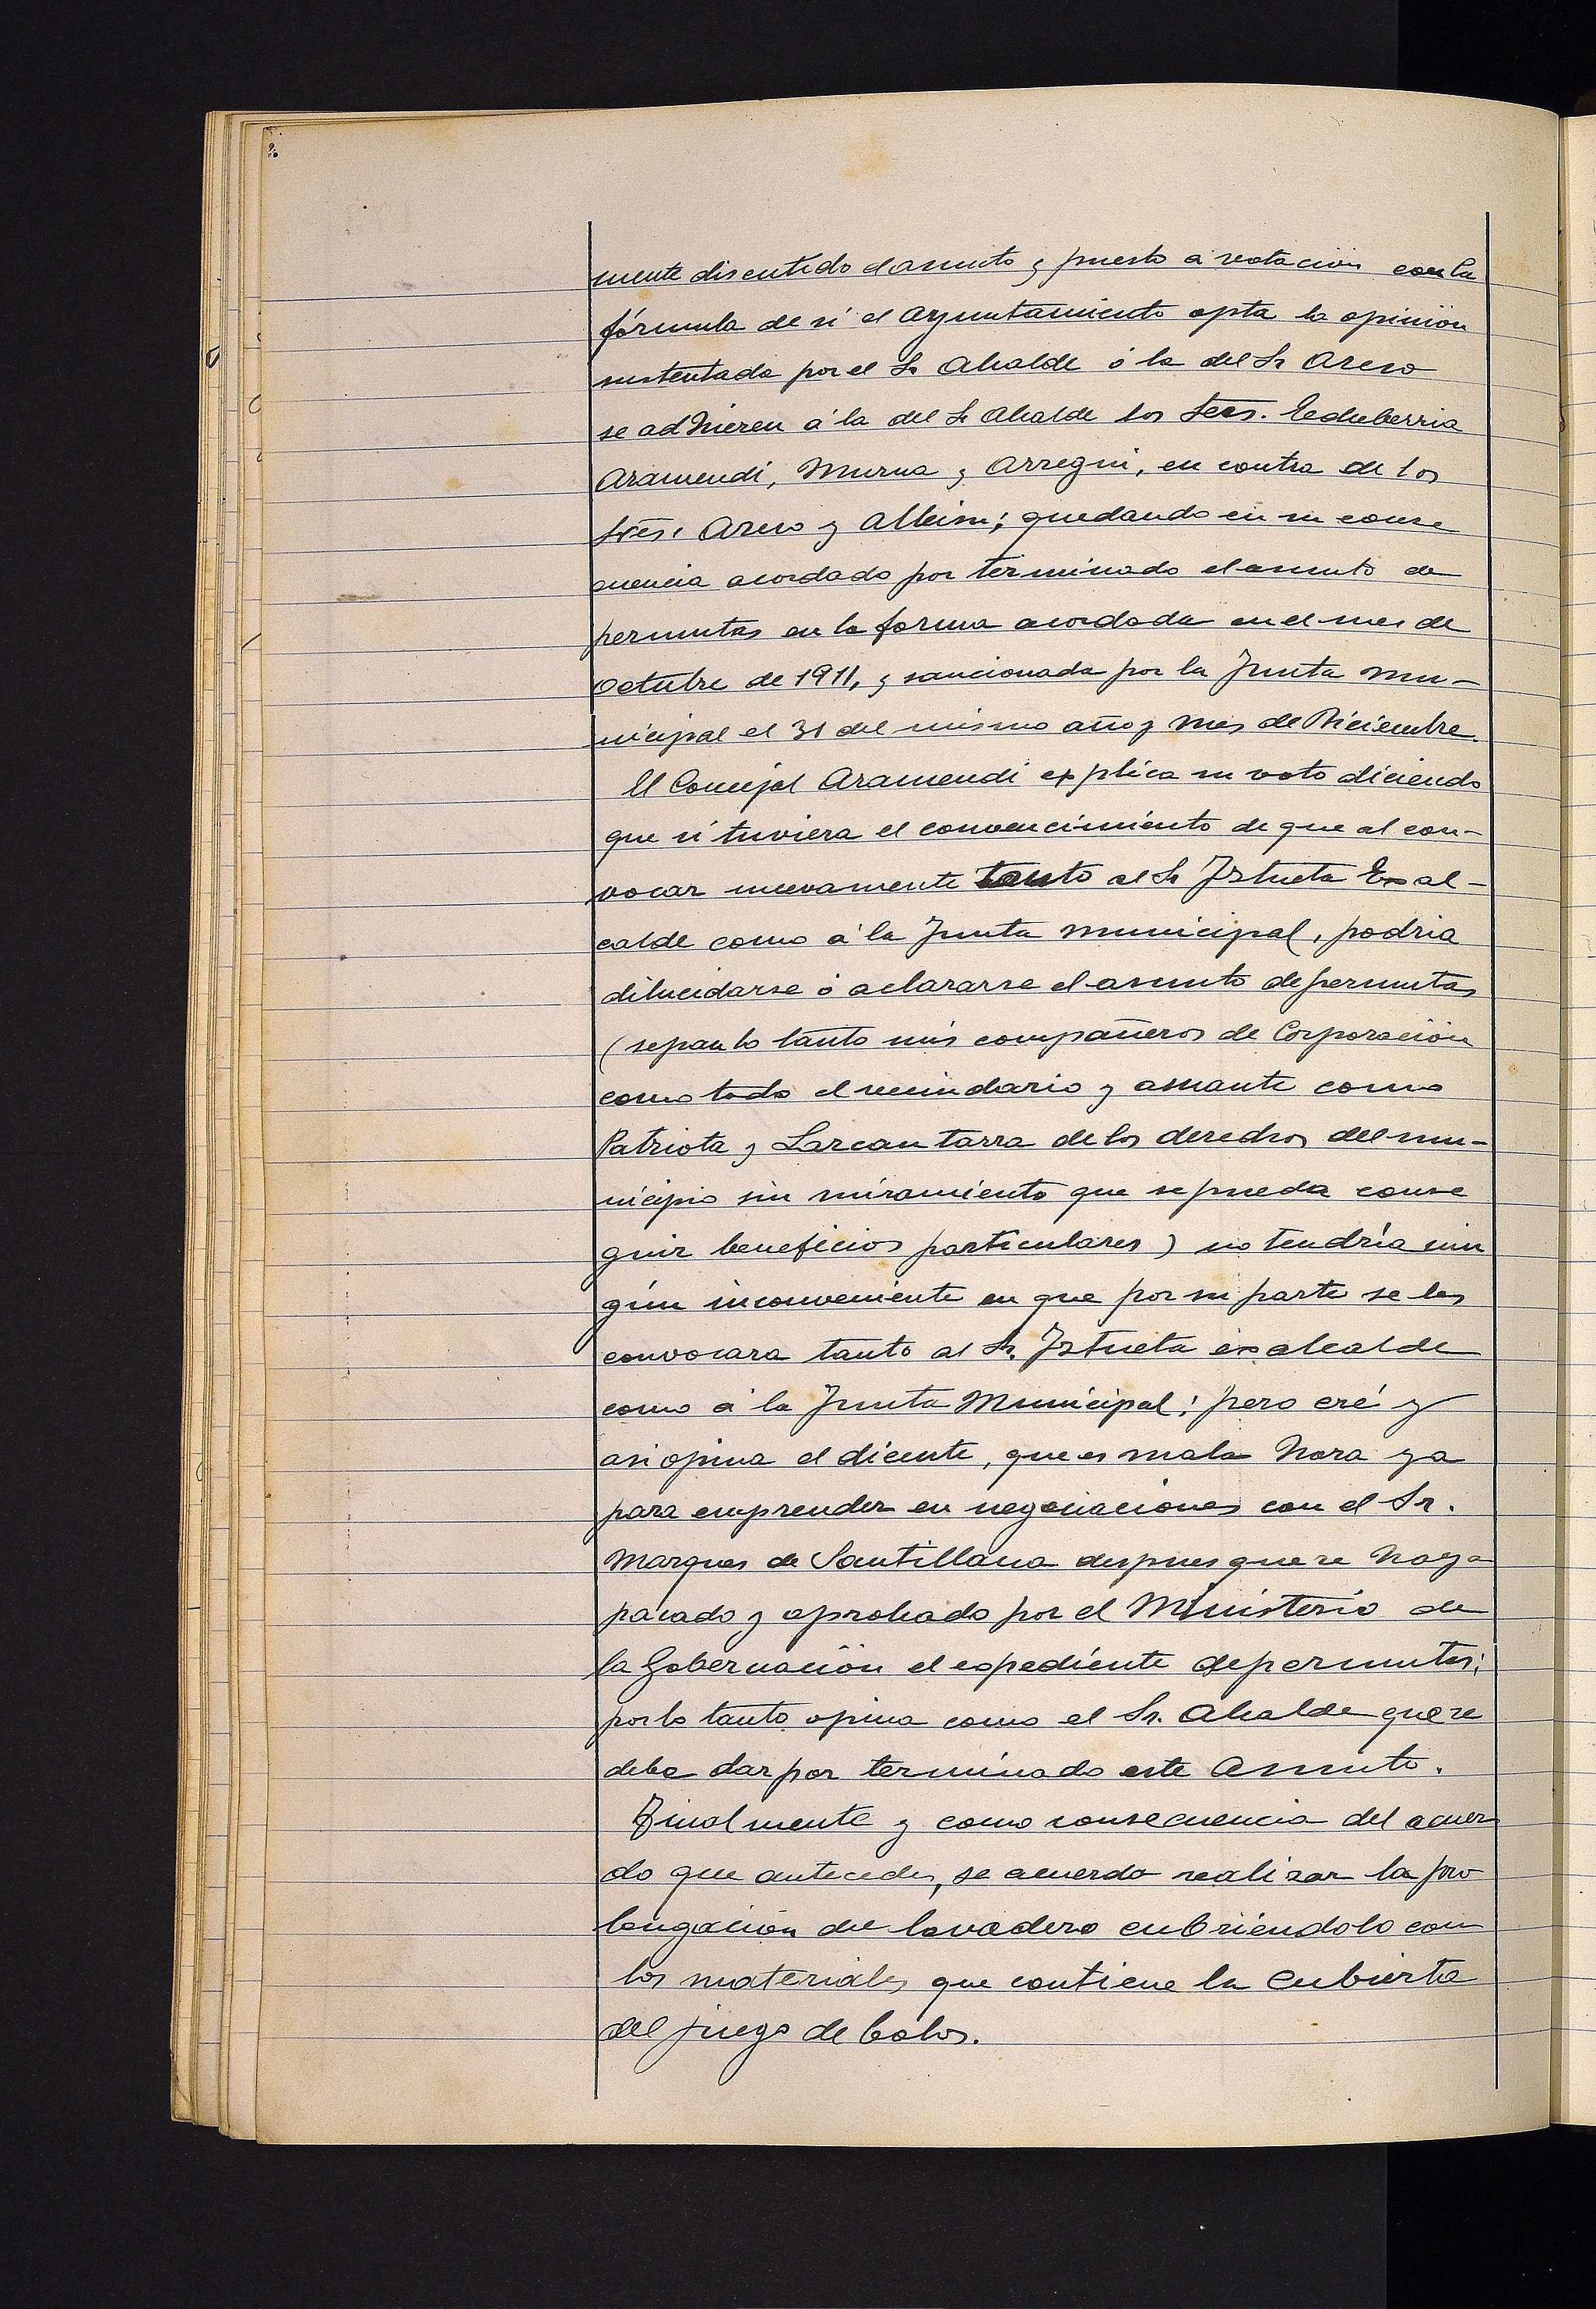 mente discutido el asunto y puesto á votación con la
fórmula de si el Ayuntamiento opta la opinión
sustentada por el Sr Alcalde ó la del Sr Areso
se adhieren á la del Sr Alcalde los Sres. Echeberria
Aramendi, Murua y Arregui, en contra de los
Sres. Areso y Albisu; quedando en su conse
cuencia acordado por terminado el asunto de
permutas en la forma acordada en el mes de
Octubre de 1911, y sancionada por la Junta mu-
nicipal el 31 del mismo año y mes de Diciembre.
El Concejal Aramendi explica su voto diciendo
que si tuviera el convencimiento de que al con-
vocar nuevamente tanto al Sr Iztueta Ex al-
calde como á la Junta municipal, podria
dilucidarse ó aclararse el asunto de permutas
(sepan lo tanto mis compañeros de Corporación
como todo el vecindario y amante como
Patriota y Lazcautarra de los derechos del mu-
nicipio sin miramiento que se pueda conse
guir beneficios particulares) no tendría nin
gún inconveniente en que por su parte se les
convocara tanto al Sr. Iztueta ex alcalde
como á la Junta Municipal; pero cré y
asi opina el dicente, que es mala hora ya
para emprender en negociaciones con el Sr.
Marques de Santillana despues que se haya
pasado y aprobado por el Ministerio de
la Gobernación el expediente de permutas;
por lo tanto opina como el Sr. Alcalde que se
debe dar por terminado este Asunto.
Finalmente y como consecuencia del acuer
do que antecede, se acuerda realizar la pro
longación del lavadero cubriéndolo con
los materiales que contiene la cubierta
del juego de bolos.